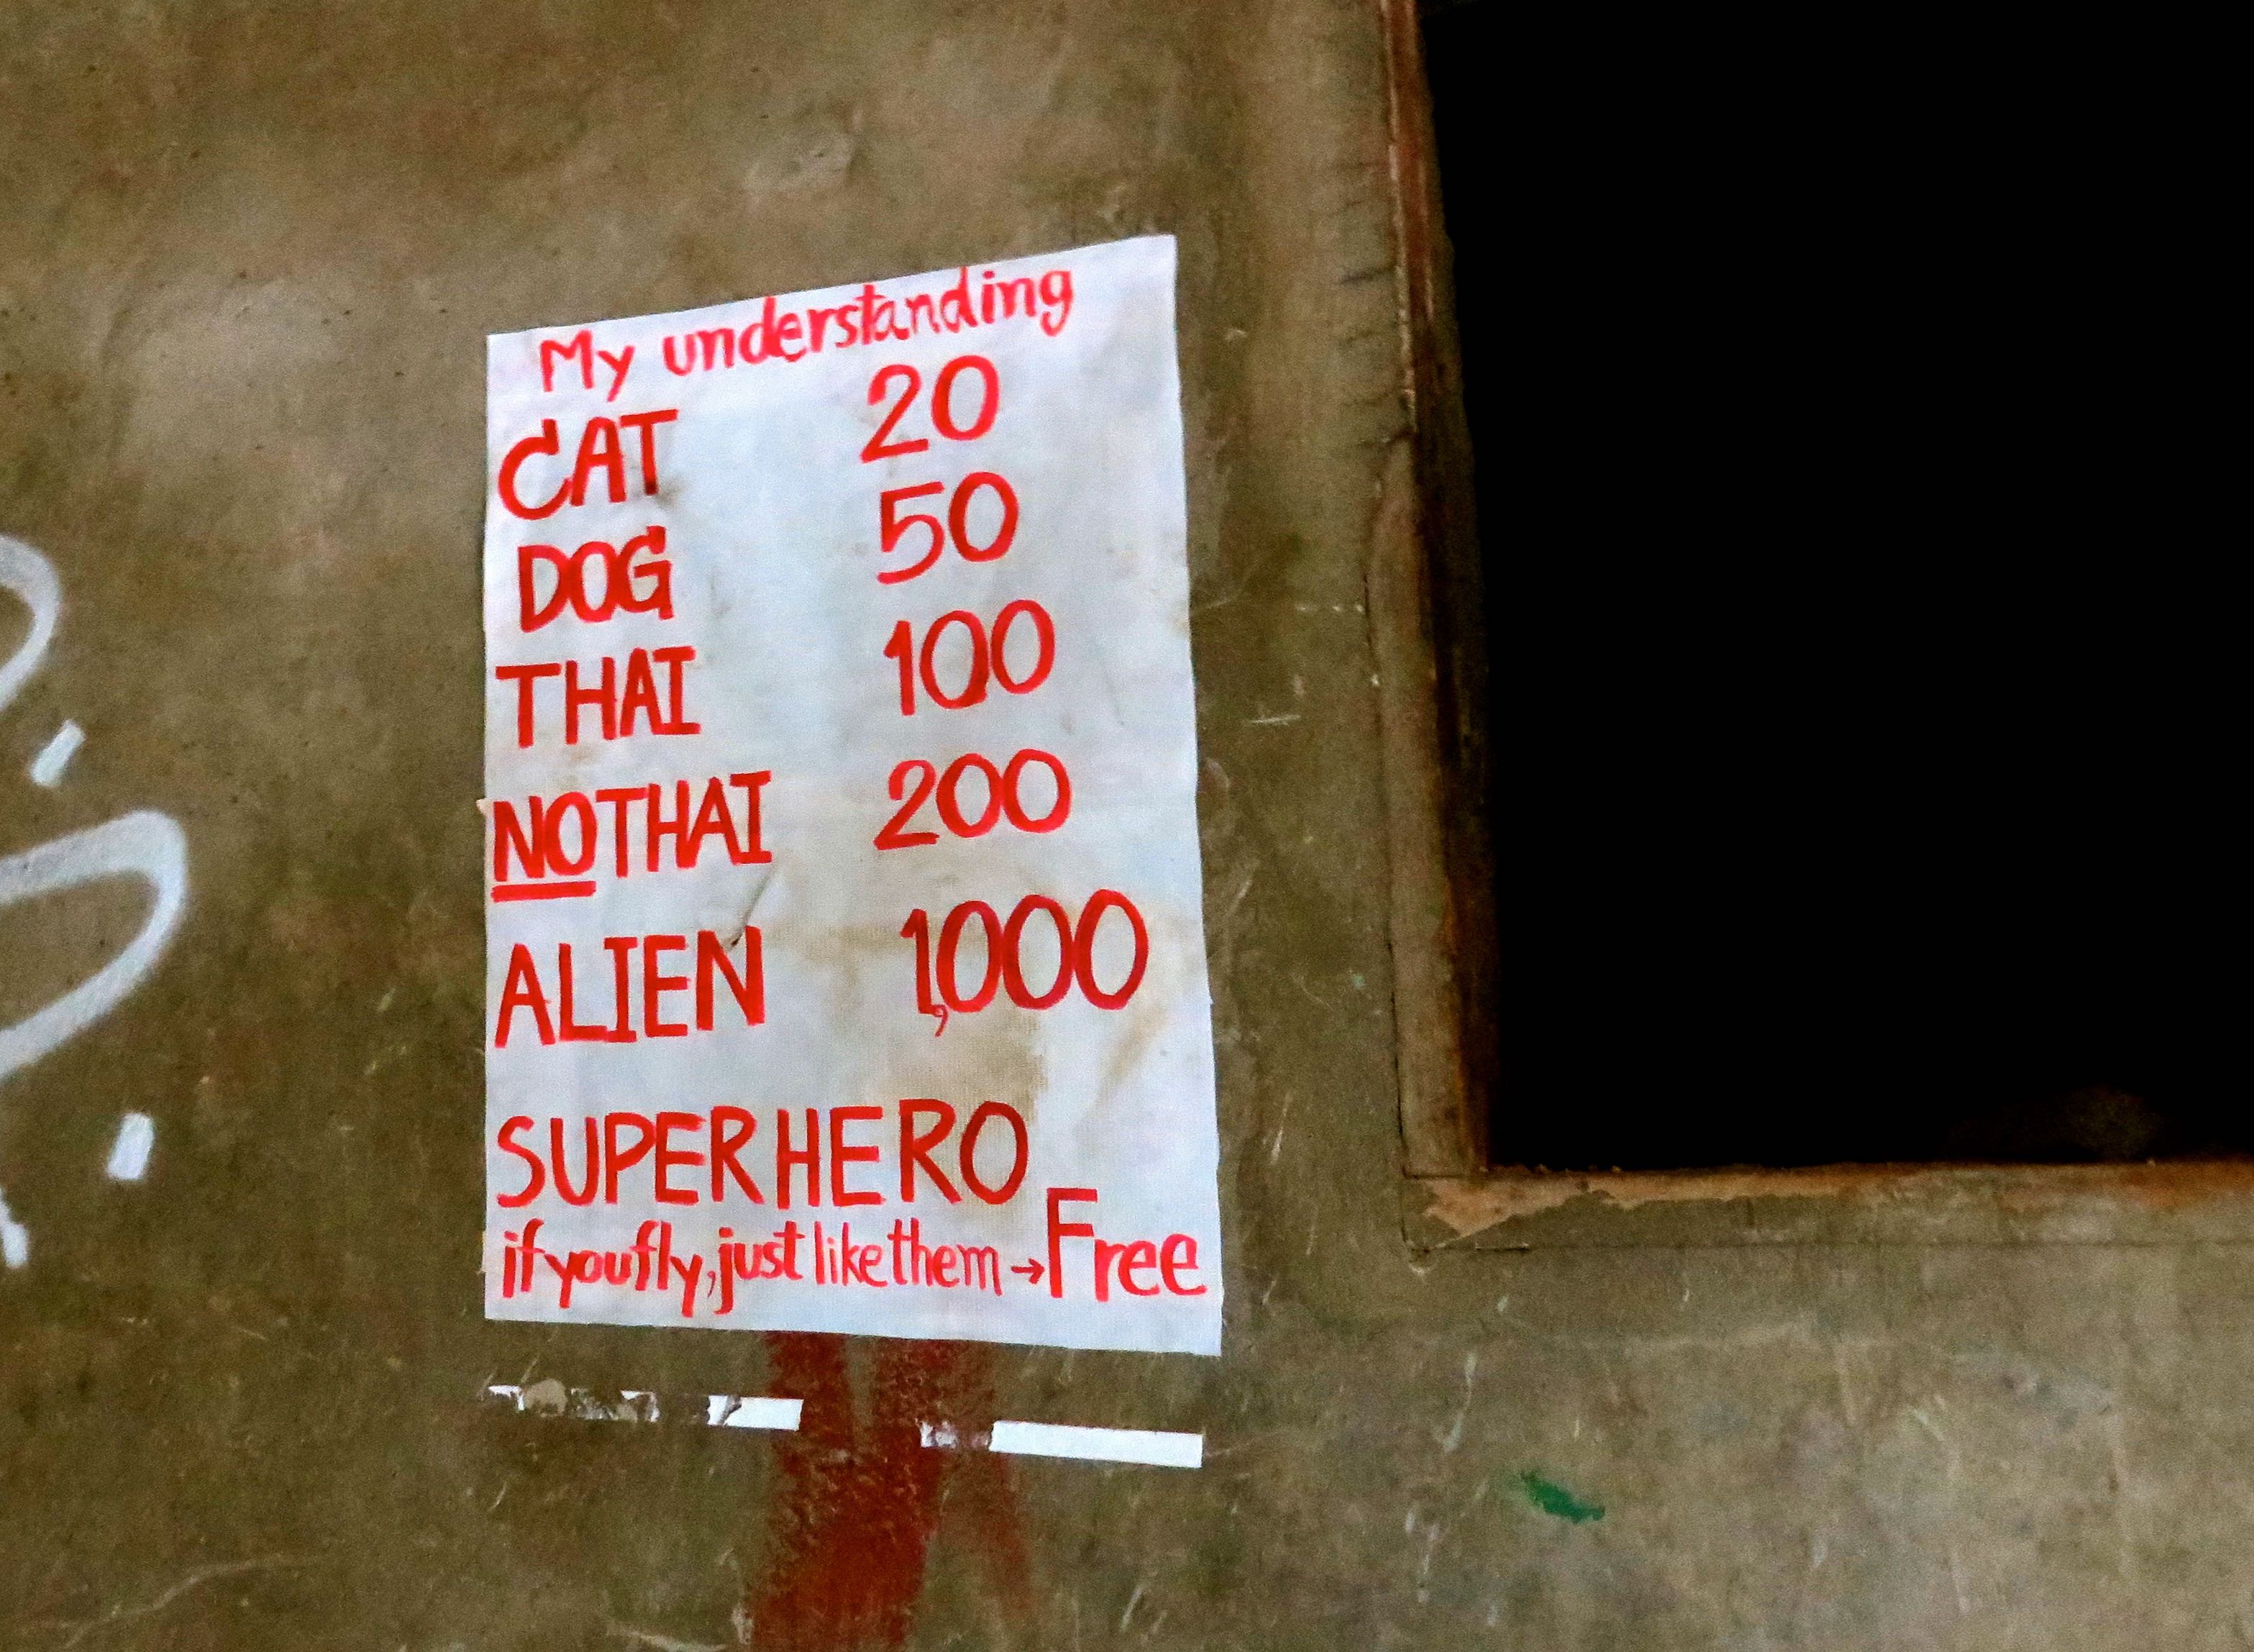 My understanding
CAT 20
DOG 50
THAI 100
NOTHAI 200
ALIEN 1,000
SUPERHERO
if you fly, just like them → Free